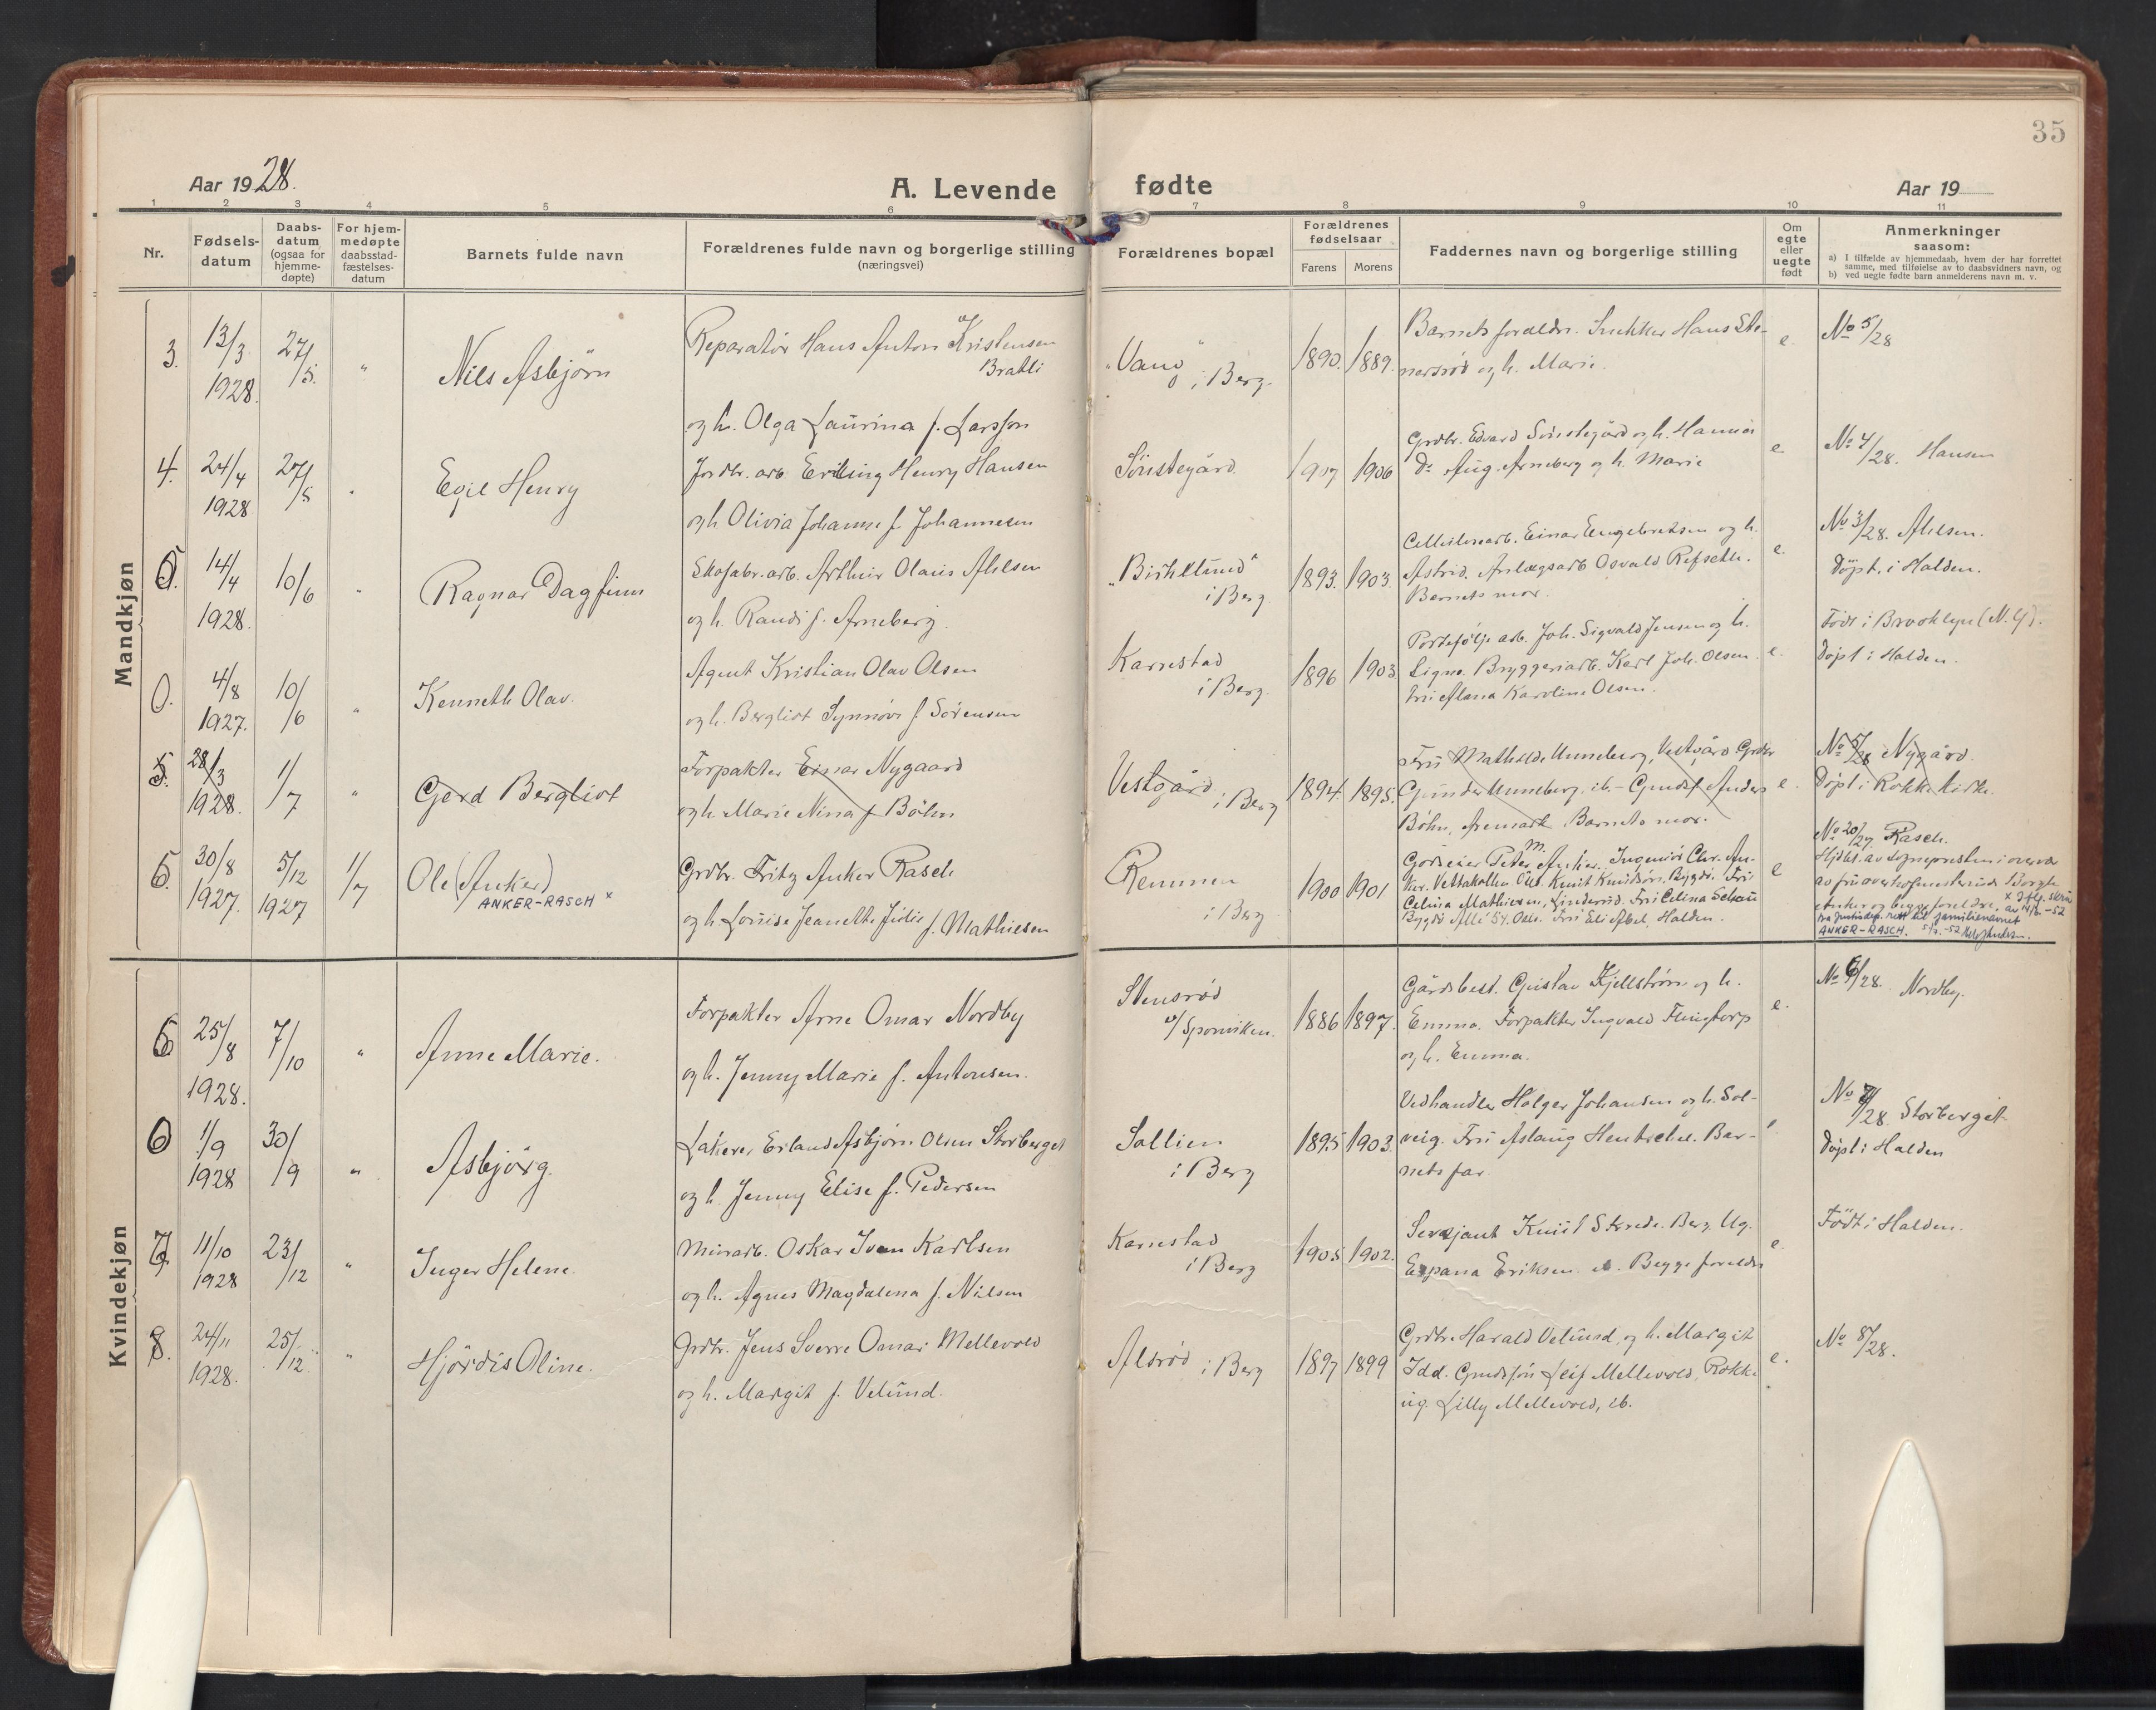 35
Aar 1928.
A. Levende fødte
Aar 19
1 2 3 4 5 6 7 8 9 10 11
Nr.
Fødsels-
datum
Daabs-
datum
(ogsaa for
hjemme-
døpte)
For hjem-
medøpte
daabsstad-
fæstelses-
datum
Barnets fulde navn
Forældrenes fulde navn og borgerlige stilling
(næringsvei)
Forældrenes bopæl
Forældrenes
fødselsaar
Farens
Morens
Faddernes navn og borgerlige stilling
Om
egte
eller
uegte
født
Anmerkninger
saasom:
a) I tilfælde av hjemmedaab, hvem der har forrettet
samme, med tilføielse av to daabsvidners navn, og
b) ved uegte fødte barn anmelderens navn m. v.
Mandkjøn
3. 13/3 1928. 27/5. " Nils Asbjörn
Reparatør Hans Anton Kristensen
Bratli
og h. Olga Laurina f. Larsson
"Vang" i Berg. 1890. 1889.
Barnets foreldre. Snekker Hans Ste-
nersrød og h. Marie.
e. No 5/28
4. 24/4 1928 27/5 " Egil Henry
Jordbr. arb. Erling Henry Hansen
og h. Olivia Johanne f. Johannesen
Sönstegård. 1907 1906
Grdbr. Edvard Sönstegård og h. Hanna
Do Aug. Arneberg og h. Marie
e No 4/28. Hansen
14/4 1928. 10/6 " Ragnar Dagfinn
Skofabr. arb. Arthur Olaus
og h. Randi f. Arneberg.
"Birkelund" i Berg. 1893. 1903.
Cellulosearb. Einar Engebretsen og h.
Astrid. Anlægsarb Osvald
Barnets mor.
e. No 3/28.
Döpt i Halden.
0. 4/8 1927. 10/6 " Kenneth Olav.
Agent Kristian Olav Olsen
og h. Bergliot Synnöve f. Sörensen
Karrestad i Berg. 1896 1903
Joh. Sigvald Jensen og h.
Signe. Bryggeriarb. Karl Joh. Olsen.
Karoline Olsen.
e. Född i Brooklyn (N.Y).
Döpt i Halden.
5. 28/3 1928. 1/7 " Gerd Bergliot
Forpakter Einar Nygaard
og h. Marie Nina f Böhn
Vestgård i Berg 1894. 1895.
Fru Mathilde Unneberg, Vestgård. Grdbr
Gunder Unneberg, ib. Anders
Böhn, Aremark. Barnets mor.
e. No 5/28 Nygård.
Döpt i Rokke kirke.
6. 30/8 1927. 5/12 1927 1/7 Ole (Anker)
ANKER-RASCH x
Grdbr. Fritz Anker Rasch
og h. Louise Jeanette Julie f. Mathiesen
Remmen i Berg 1900 1901
Godseier Peter M. Anker. Ingeniör Chr. An-
ker. Vettakollen Oslo. Knut Knudsön, Bygdö. Fru
Celina Mathiesen, Linderud. Fru Celina
Bygdö Allé 54. Oslo. Fru Eli Abel, Halden.
e No 20/27 Rasch.
Hjdbt. av sogneprsten i overvær
av fru overhofmesterinde Borghild
Anker og begge foreldre. x Iflg. skriv
fra Justisdep. rett til familienavnet
ANKER-RASCH.
Kvindekjøn
25/8 1928. 7/10 " Anne Marie.
Forpakter Arne Omar Nordby
og h. Jenny Marie f. Antonsen.
Stensrød
v/ Sponviken. 1886 1897.
Gårdsbest. Gustav Kjellström og h.
Emma. Forpakter Ingvald Flingtorp
og h. Emma.
e. No 6/28. Nordby.
6 1/9 1928 30/9 " Asbjörg.
Lakerer Erland Asbjörn Olsen Storberget
og h. Jenny Elise f. Pedersen
Sollien i Berg 1895 1903.
Vedhandler Holger Johansen og h. Sol-
veig. Fru Aslaug Hentschel. Bar-
nets far.
No 7/28. Storberget
Döpt i Halden
7. 11/10 1928 23/12 " Inger Helene.
Murarb. Oskar Ivan Karlsen
og h. Agnes Magdalena f. Nilsen
Karrestad i Berg 1905 1902.
Serjant Knut Skrede. Berg. Ug.
Eriksen. Begge foreldre
e. Född i Halden.
8. 24/11 1928. 25/12. " Hjördis Oline.
Grdbr. Jens Sverre Omar Mellevold
og h. Margit f. Velund.
i Berg 1897 1899
Grdbr. Harald Velund, og h. Margit
Idd. Grudsön Leif Mellevold, Rokke
ug. Lilly Mellevold, ib.
e. No 8/28.